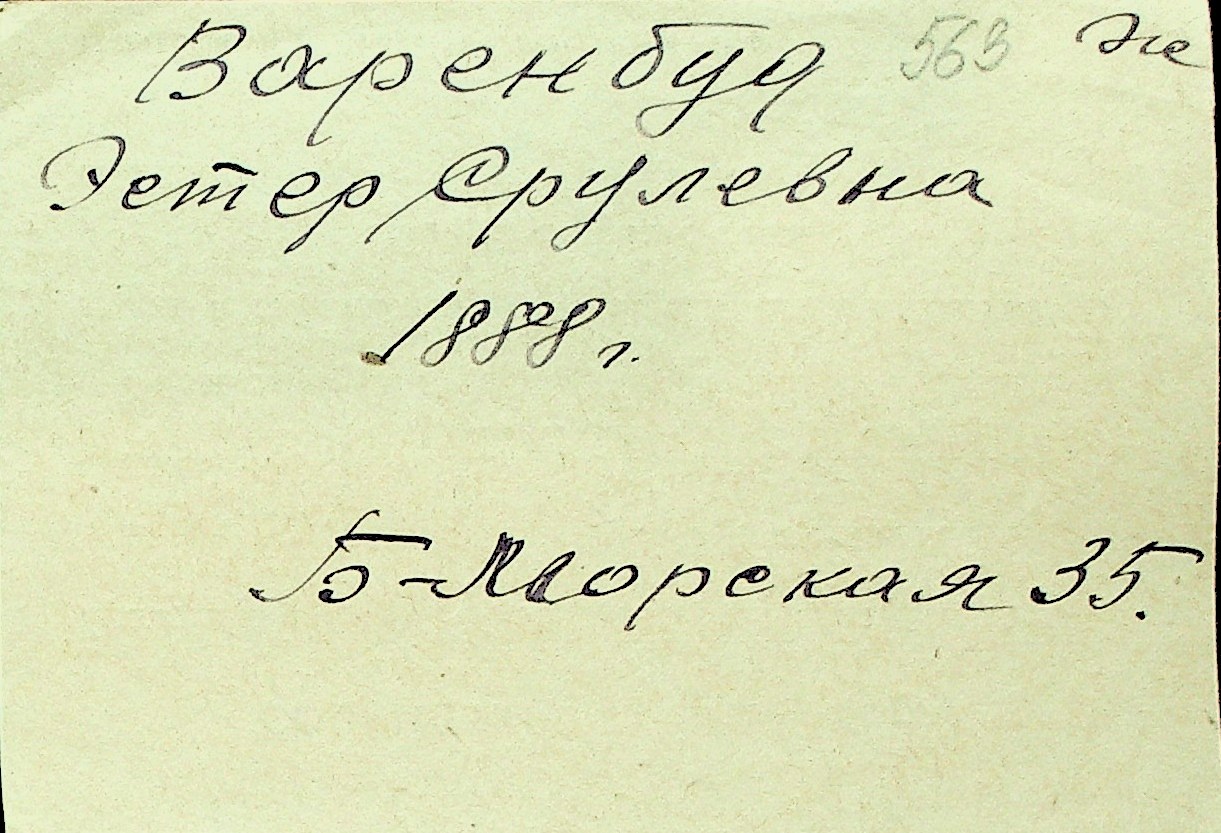 Варенбуд 563 э/е
Эстер Срулевна
1888 г.
Б-Морская 35.